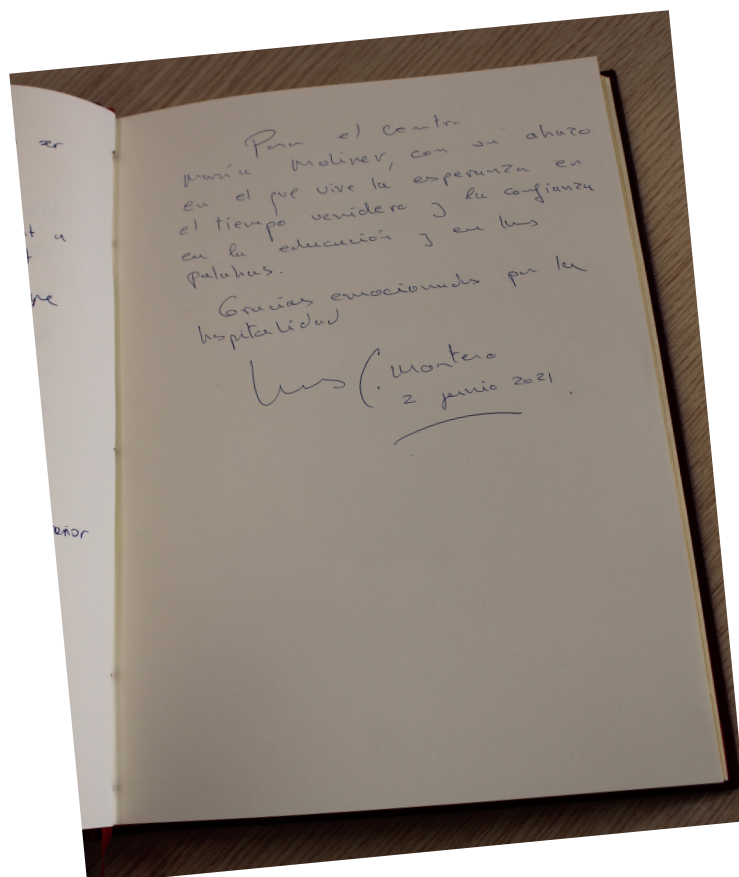 ser
a
señor
Para el centro
María Moliner, con un abrazo
en el que vive la esperanza en
el tiempo venidero y la confianza
en la educación y en las
palabras.
Gracias emocionadas por la
hospitalidad
Luis G. Montero
2 junio 2021